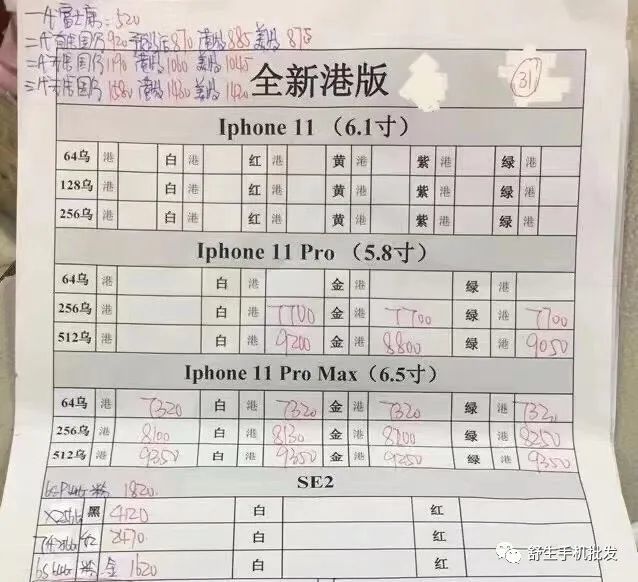 一代富士康:520
二代有店国行920 预激活870 港版885 美版875
二代有店国行1190 港版1060 美版1045
三代有店国行1580 港版1430 美版1420
全新港版
311
Iphone 11 （6.1寸）
64乌 港 白 港 红 港 黄 港 紫 港 绿 港
128乌 港 白 港 红 港 黄 港 紫 港 绿 港
256乌 港 白 港 红 港 黄 港 紫 港 绿 港
Iphone 11 Pro （5.8寸）
64乌 港 白 港 金 港 绿 港
256乌 港 白 港 7700 金 港 7700 绿 港 7700
512乌 港 白 港 9200 金 港 8800 绿 港 9050
Iphone 11 Pro Max（6.5寸）
64乌 港 7320 白 港 7320 金 港 7320 绿 港 7320
256乌 港 8100 白 港 8130 金 港 绿 港 8250
512乌 港 9350 白 港 9350 金 港 9250 绿 港 9350
SE2
1820
X256G 黑 4120 白 红
2470 白 红
6S 粉 金 1620 白 红
舒生手机批发